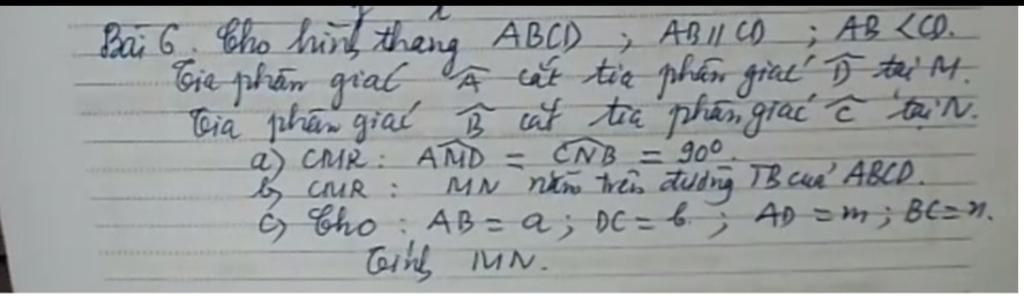 Bài 6. Cho hình thang ABCD ; AB // CD ; AB < CD.
Tia phân giác Â cắt tia phân giác D̂ tại M.
Tia phân giác B̂ cắt tia phân giác Ĉ tại N.
a) CMR : AMD = CNB = 90°.
b) CMR : MN nằm trên đường TB của ABCD.
c) Cho : AB = a ; DC = b ; AD = m ; BC = n.
Tính MN.